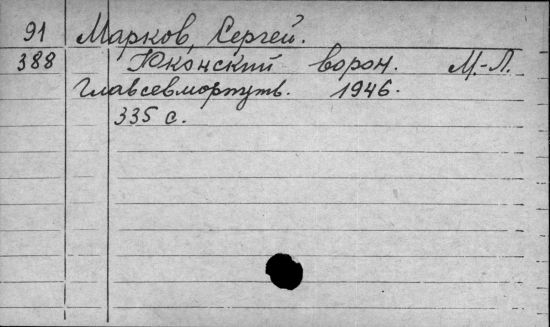 91 Марков, Сергей.
388 Юконский ворон. М.-Л.
Главсевморпуть. 1946.
335 с.